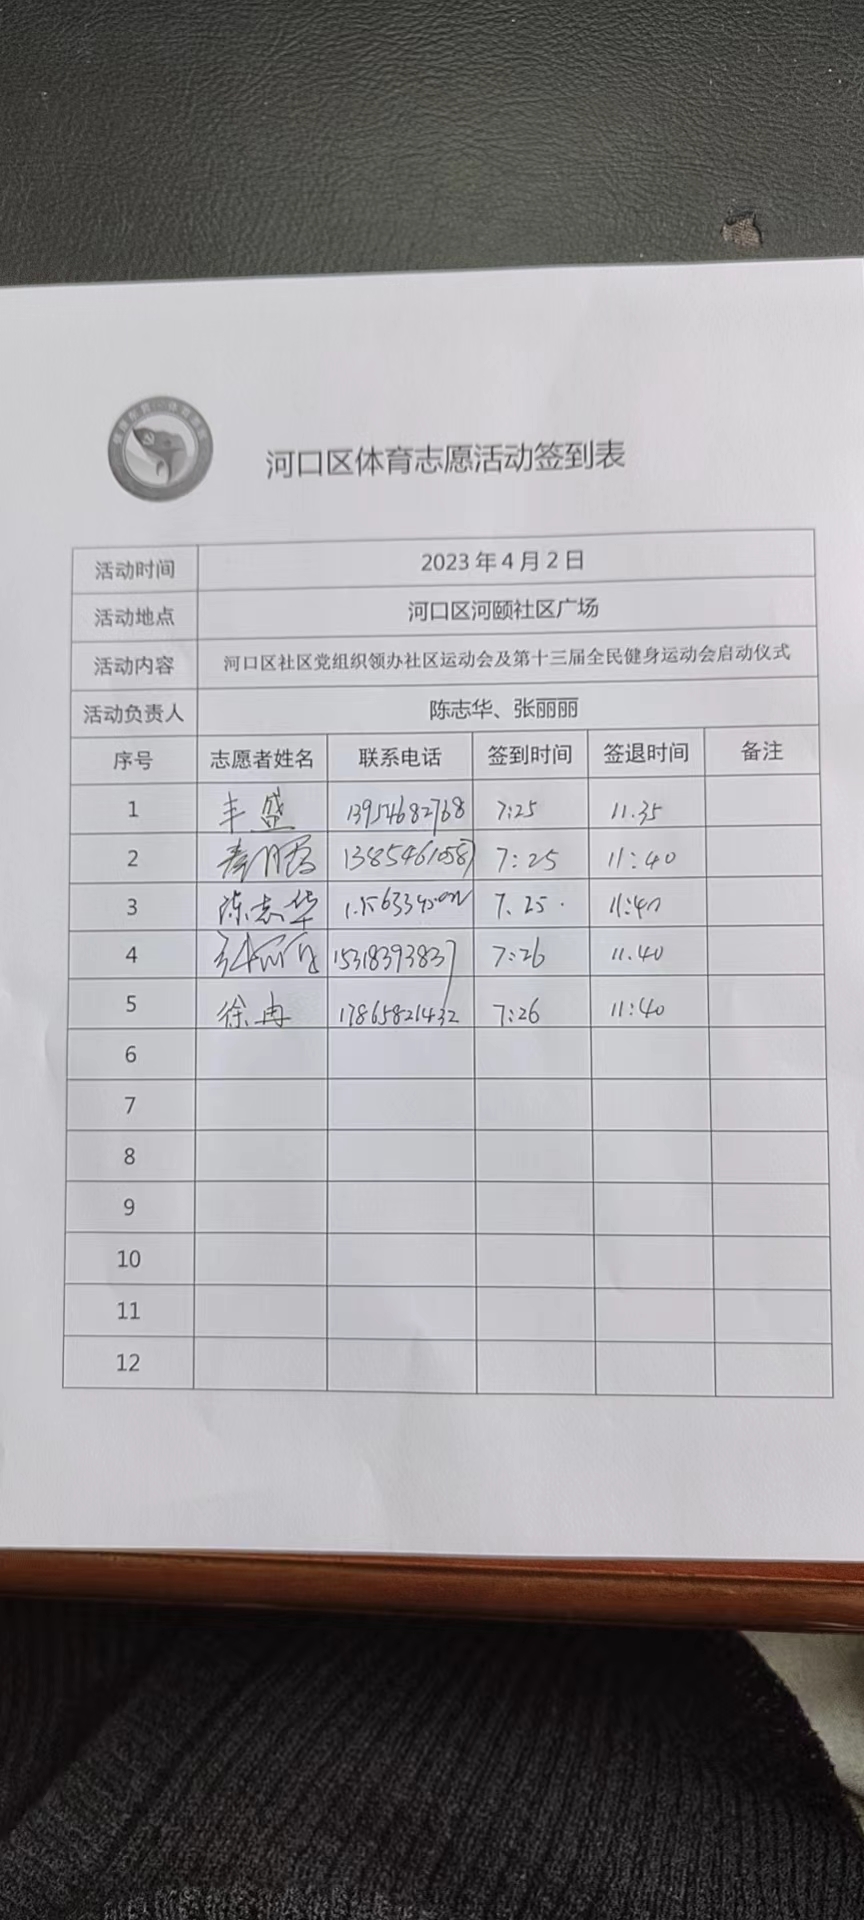 河口区体育志愿活动签到表
活动时间 2023年4月2日
活动地点 河口区河颐社区广场
活动内容 河口区社区党组织领办社区运动会及第十三届全民健身运动会启动仪式
活动负责人 陈志华、张丽丽
序号 志愿者姓名 联系电话 签到时间 签退时间 备注
1 丰盛 13954682768 7:25 11.35
2 13854610587 7:25 11:40
3 陈志华 7.25. 11:40
4 15318393837 7:26 11.40
5 徐冉 17865821432 7:26 11:40
6
7
8
9
10
11
12